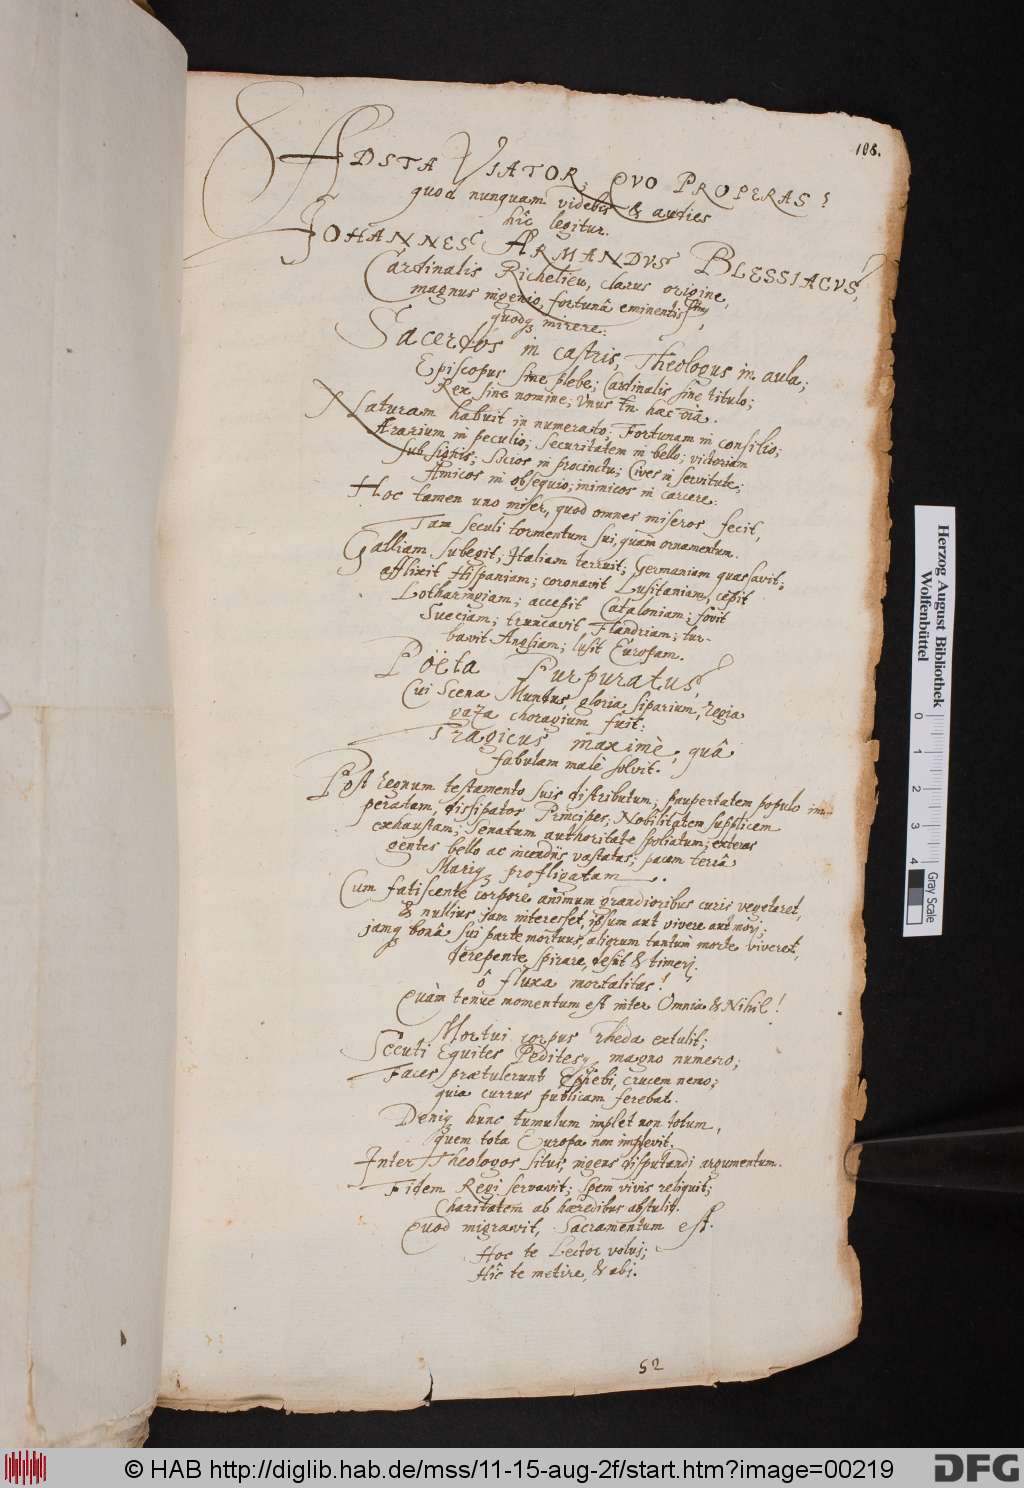 108.
ADSTA VIATOR, QVO PROPERAS?
quod nunquam videbis & audies
hîc legitur.
JOHANNES ARMANDVS BLESSIACVS,
Cardinalis Richelieu, clarus origine,
magnus ingenio, fortunâ eminentiss.
quodq mirere:
Sacerdos in castris, Theologus in aula;
Episcopus sine plebe; Cardinalis sine titulo;
Rex sine nomine; Vnus tn hæc
Naturam habuit in numerato; Fortunam in consilio;
Ærarium in peculio; Securitatem in bello; victoriam
sub signis; Socios in procinctu; Cives in servitute;
Amicos in obsequio; inimicos in carcere:
Hoc tamen uno miser, quod omnes miseros fecit,
Tam seculi tormentum sui, quàm ornamentum.
Galliam subegit; Italiam terruit; Germaniam quassavit;
afflixit Hispaniam; coronavit Lusitaniam, cepit
Lotharingiam; accepit Cataloniam; fovit
Sueciam; truncavit Flandriam; tur-
bavit Angliam; lusit Europam.
Poëta Purpuratus,
Cui Scena Mundus, gloria siparium, regia
gaza choragium fuit:
Tragicus maximè, quâ
fabulam malè solvit.
Post regnum testamento suis distributum; paupertatem populo im-
peratam, dissipatos Principes, Nobilitatem supplicem
exhaustam; Senatum authoritate spoliatum; exteras
gentes bello ac incendijs vastatas; pacem terrâ
Mariq profligatam.
Cum fatiscente corpore animum grandioribus curis vegetaret,
& nullius jam interesset, ipsum aut vivere aut mori;
jamq bonâ sui parte mortuus, aliorum tantum morte viveret,
derepente spirare, desijt & timeri.
ô fluxa mortalitas!
Quàm tenue momentum est inter Omnia & Nihil!
Mortui corpus rheda extulit;
Secuti Equites Peditesq magno numero;
Faces prætulerunt Ephebi, crucem nemo;
quia currus publicam ferebat.
Deniq hunc tumulum implet non totum,
quem tota Europa non implevit.
Inter Theologos situs, ingens disputandi argumentum.
Fidem Regi servavit; spem vivis reliquit;
Charitatem ab hæredibus abstulit.
Quod migravit, Sacramentum est.
Hoc te Lector volui;
Hîc te metire, & abi.
52
Herzog August Bibliothek
Wolfenbüttel
0 1 2 3 4
Gray Scale
© HAB http://diglib.hab.de/mss/11-15-aug-2f/start.htm?image=00219
DFG